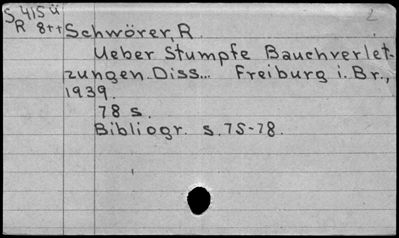 S 415ü 2
R 8++ Schwörer, R
Ueber Stumpfe Bauchverlet-
zungen. Diss... Freiburg i. Br.,
1939.
78 s.
Bibliogr. s. 75-78.